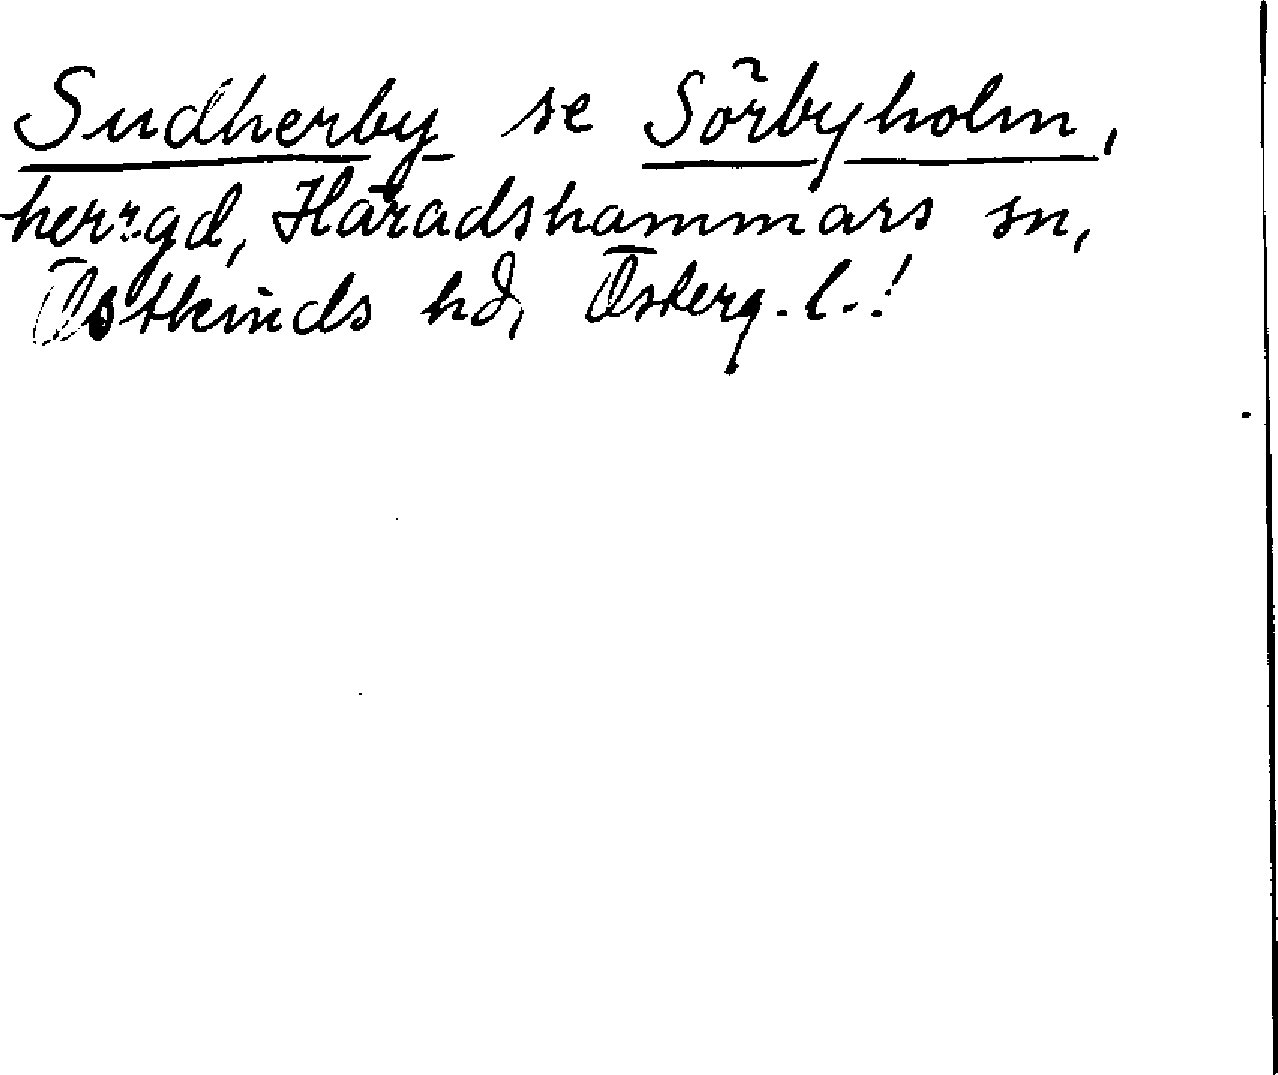 Sudherby se Sörbyholm,
herrgd, Häradshammars sn,
Östkinds hd, Österg. l.!